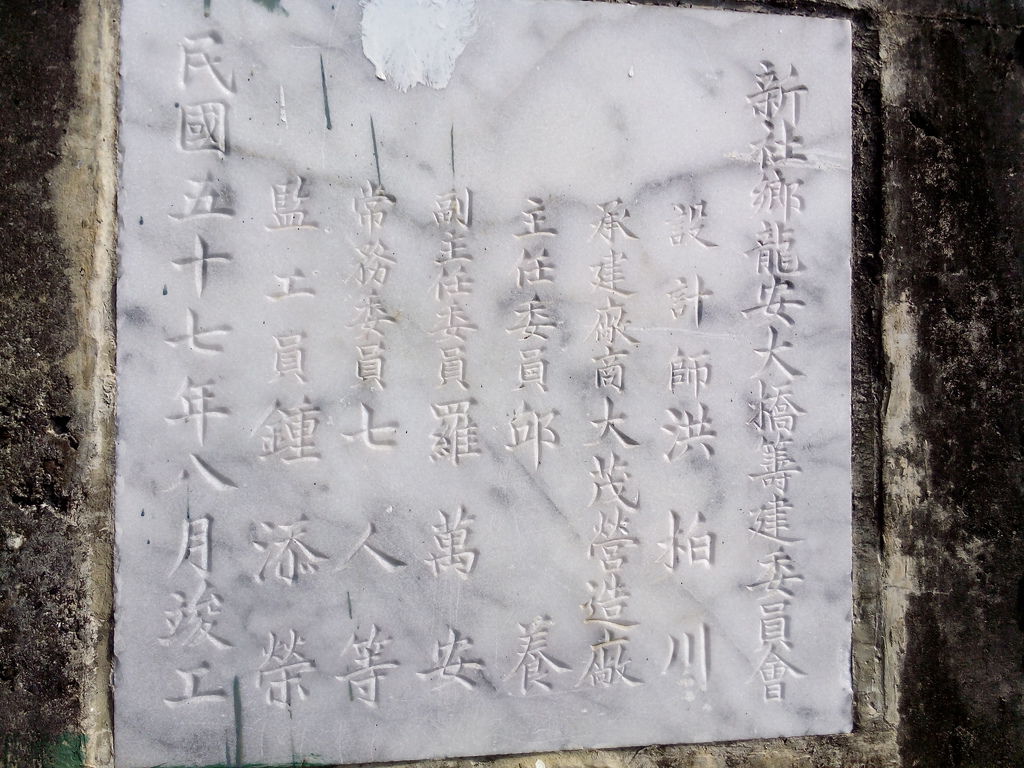 新社鄉龍安大橋籌建委員會
設計師洪柏川
承建廠商大茂營造廠
主任委員邱養
副主任委員羅萬安
常務委員七人等
監工員鍾添榮
民國五十七年八月竣工